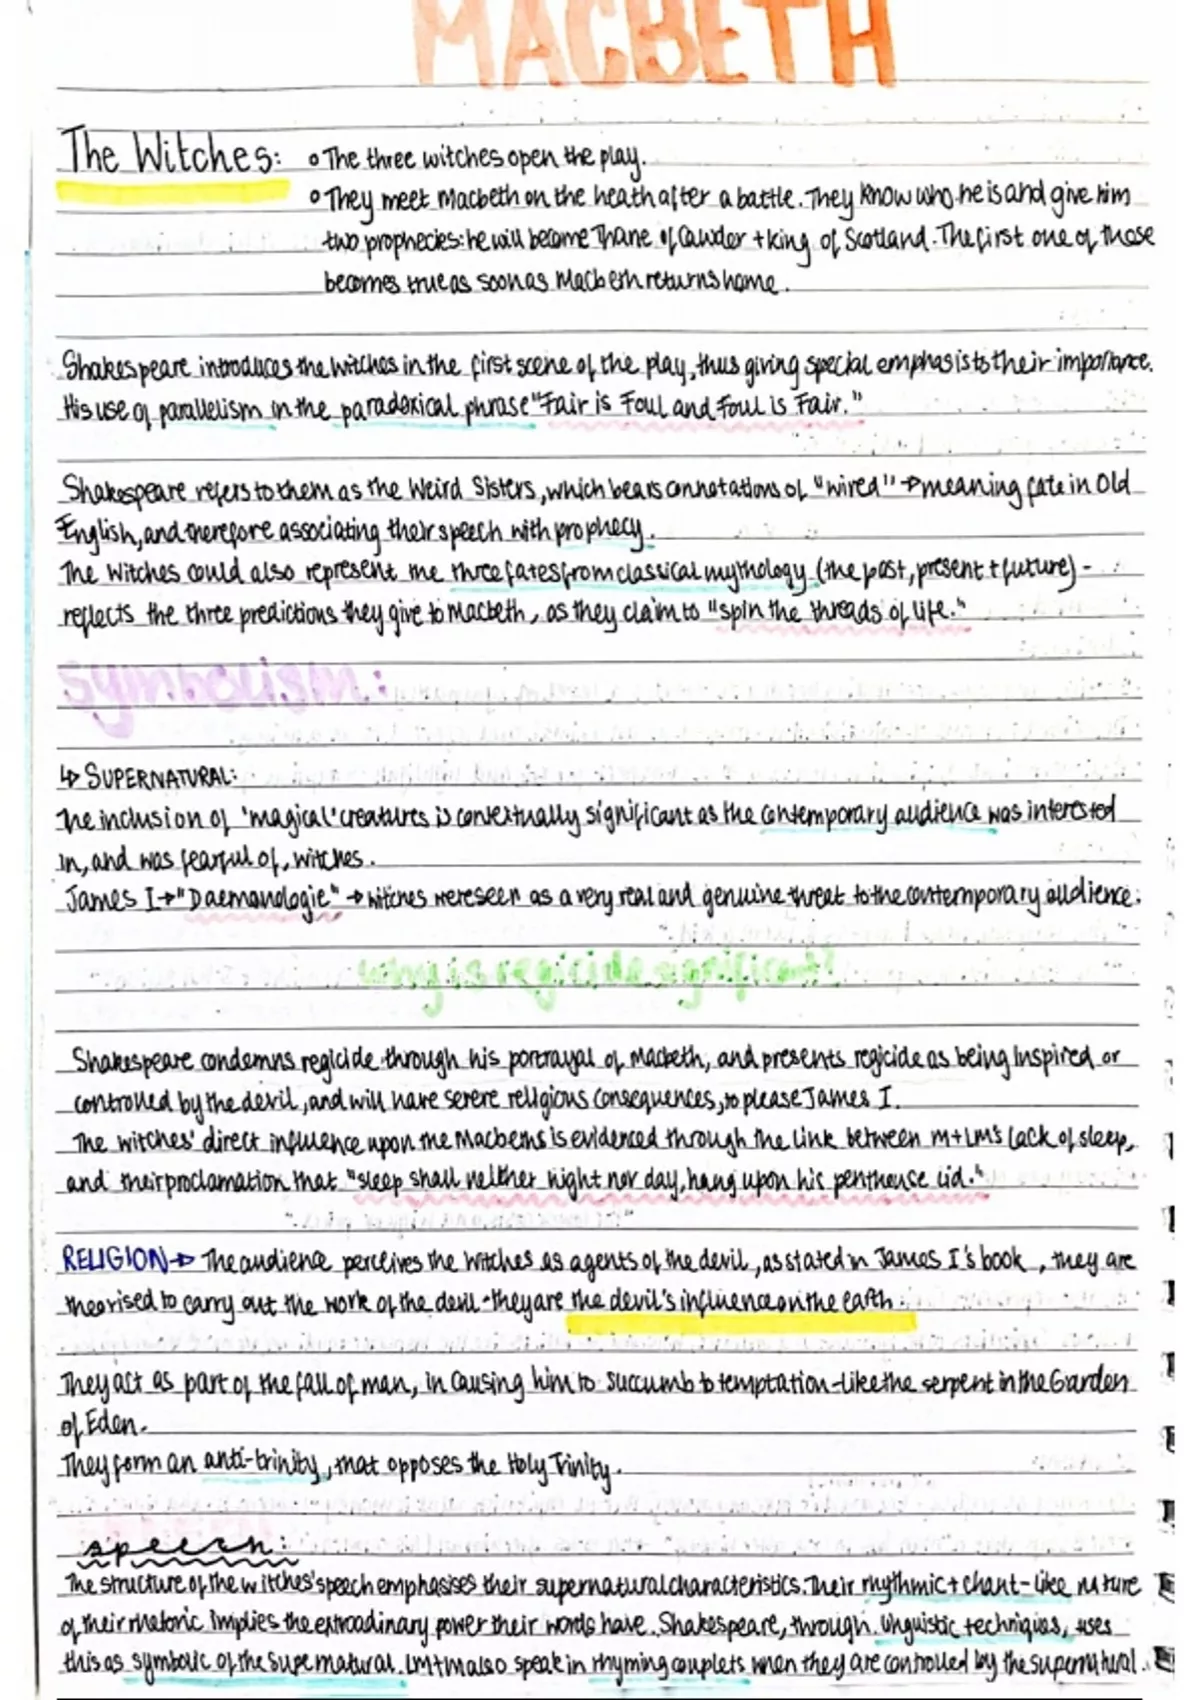 MACBETH
The Witches: ° The three witches open the play.
° They meet Macbeth on the heath after a battle. They know who he is and give him
two prophecies: he will become Thane of Cawder + king of Scotland. The first one of these
becomes true as soon as Macbeth returns home.
Shakespeare introduces the witches in the first scene of the play, thus giving special emphasis to their importance.
His use of parallelism in the paradoxical phrase "Fair is Foul and Foul is Fair."
Shakespeare refers to them as the Weird Sisters, which bears connotations of "wired" → meaning fate in Old
English, and therefore associating their speech with prophecy.
The witches could also represent the three fates from classical mythology (the past, present + future) -
reflects the three predictions they give to Macbeth, as they claim to "spin the threads of life."
Symbolism:
↳ SUPERNATURAL:
The inclusion of 'magical' creatures is contextually significant as the contemporary audience was interested
in, and was fearful of, witches.
James I → "Daemonologie" → witches were seen as a very real and genuine threat to the contemporary audience.
why is regicide significant?
Shakespeare condemns regicide through his portrayal of Macbeth, and presents regicide as being inspired or
controlled by the devil, and will have severe religious consequences, to please James I.
The witches' direct influence upon the Macbeths is evidenced through the link between M+LM's lack of sleep,
and their proclamation that "sleep shall neither night nor day, hang upon his penthouse lid."
RELIGION → The audience perceives the witches as agents of the devil, as stated in James I's book, they are
theorised to carry out the work of the devil - they are the devil's influence on the earth.
They act as part of the fall of man, in causing him to succumb to temptation - like the serpent in the Garden
of Eden.
They form an anti-trinity, that opposes the Holy Trinity.
speech:
The structure of the witches' speech emphasises their supernatural characteristics. Their rhythmic + chant-like nature
of their rhetoric implies the extraodinary power their words have. Shakespeare, through linguistic techniques, uses
this as symbolic of the supernatural. LM+M also speak in rhyming couplets when they are controlled by the supernatural.